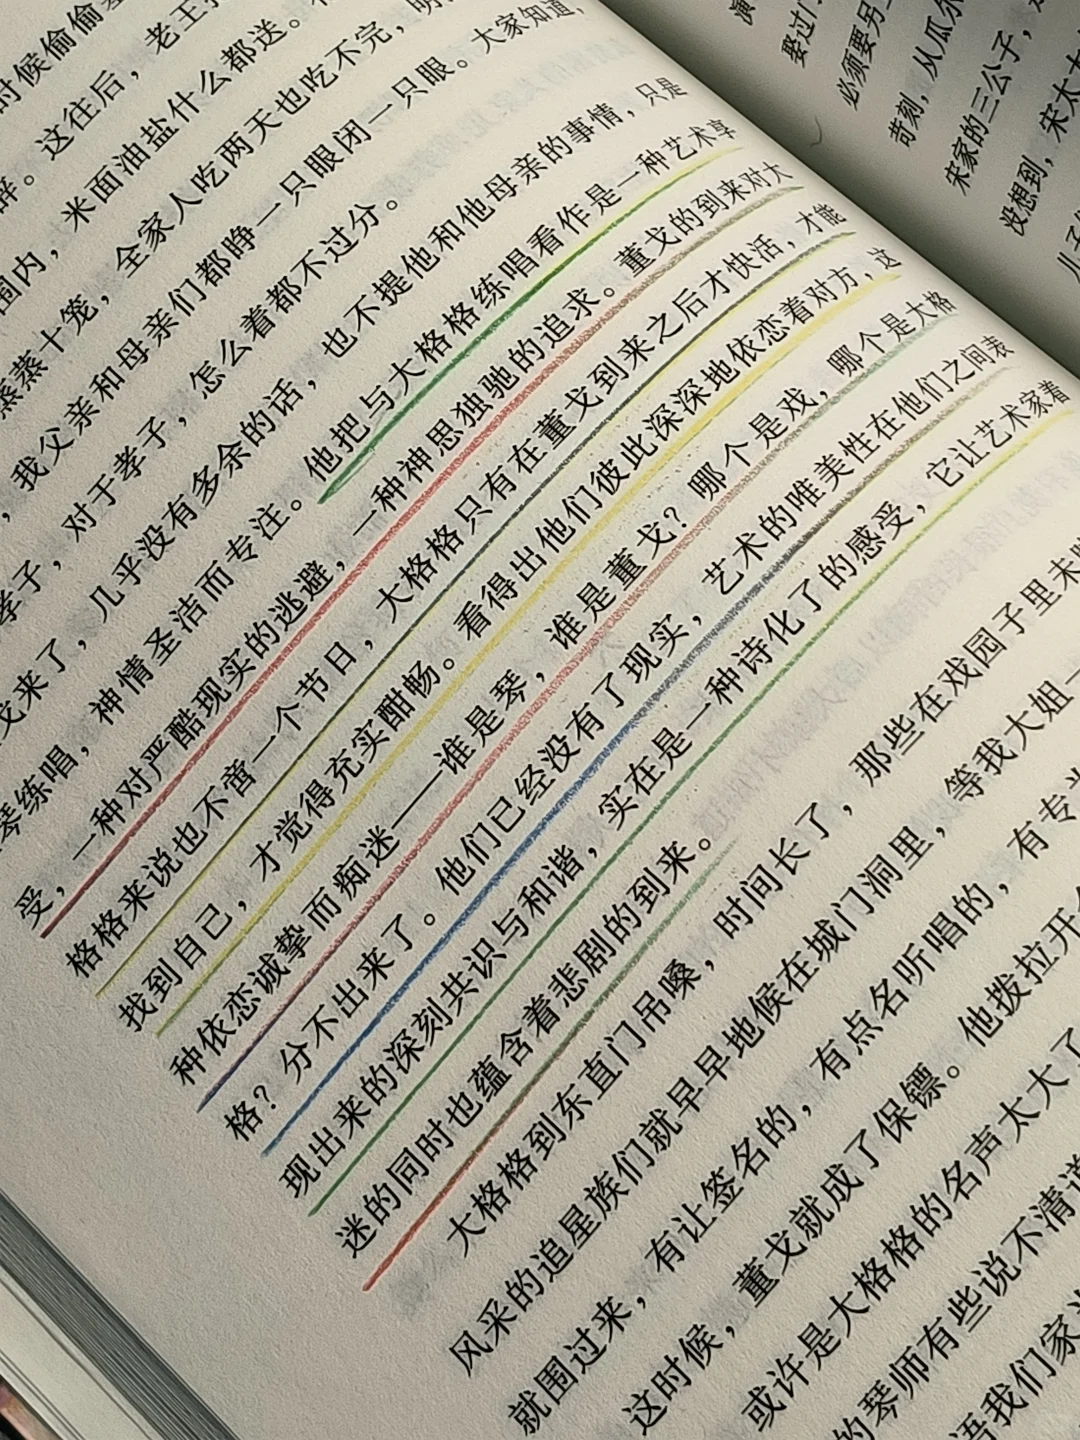 时候偷偷
辞。这往后，老王
围内，米面油盐什么都送。
蒸蒸十笼，全家人吃两天也吃不完，
，我父亲和母亲们都睁一只眼闭一只眼。大家知道，
孝子，对于孝子，怎么着都不过分。
来了，几乎没有多余的话，也不提他和他母亲的事情，只是
琴练唱，神情圣洁而专注。他把与大格格练唱看作是一种艺术享
受，一种对严酷现实的逃避，一种神思独驰的追求。董戈的到来对大
格格来说也不啻一个节日，大格格只有在董戈到来之后才快活，才能
找到自己，才觉得充实酣畅。看得出他们彼此深深地依恋着对方，这
种依恋诚挚而痴迷——谁是琴，谁是董戈？哪个是戏，哪个是大格
格？分不出来了。他们已经没有了现实，艺术的唯美性在他们之间表
现出来的深刻共识与和谐，实在是一种诗化了的感受，它让艺术家着
迷的同时也蕴含着悲剧的到来。
大格格到东直门吊嗓，时间长了，那些在戏园子里未
风采的追星族们就早早地候在城门洞里，等我大姐一
就围过来，有让签名的，有点名听唱的，有专
这时候，董戈就成了保镖。他拨拉开
或许是大格格的名声太大了
的琴师有些说不清道
语我们家
娶过门
必须要另
苛刻，从瓜尔
宋家的三公子，
没想到，宋太太